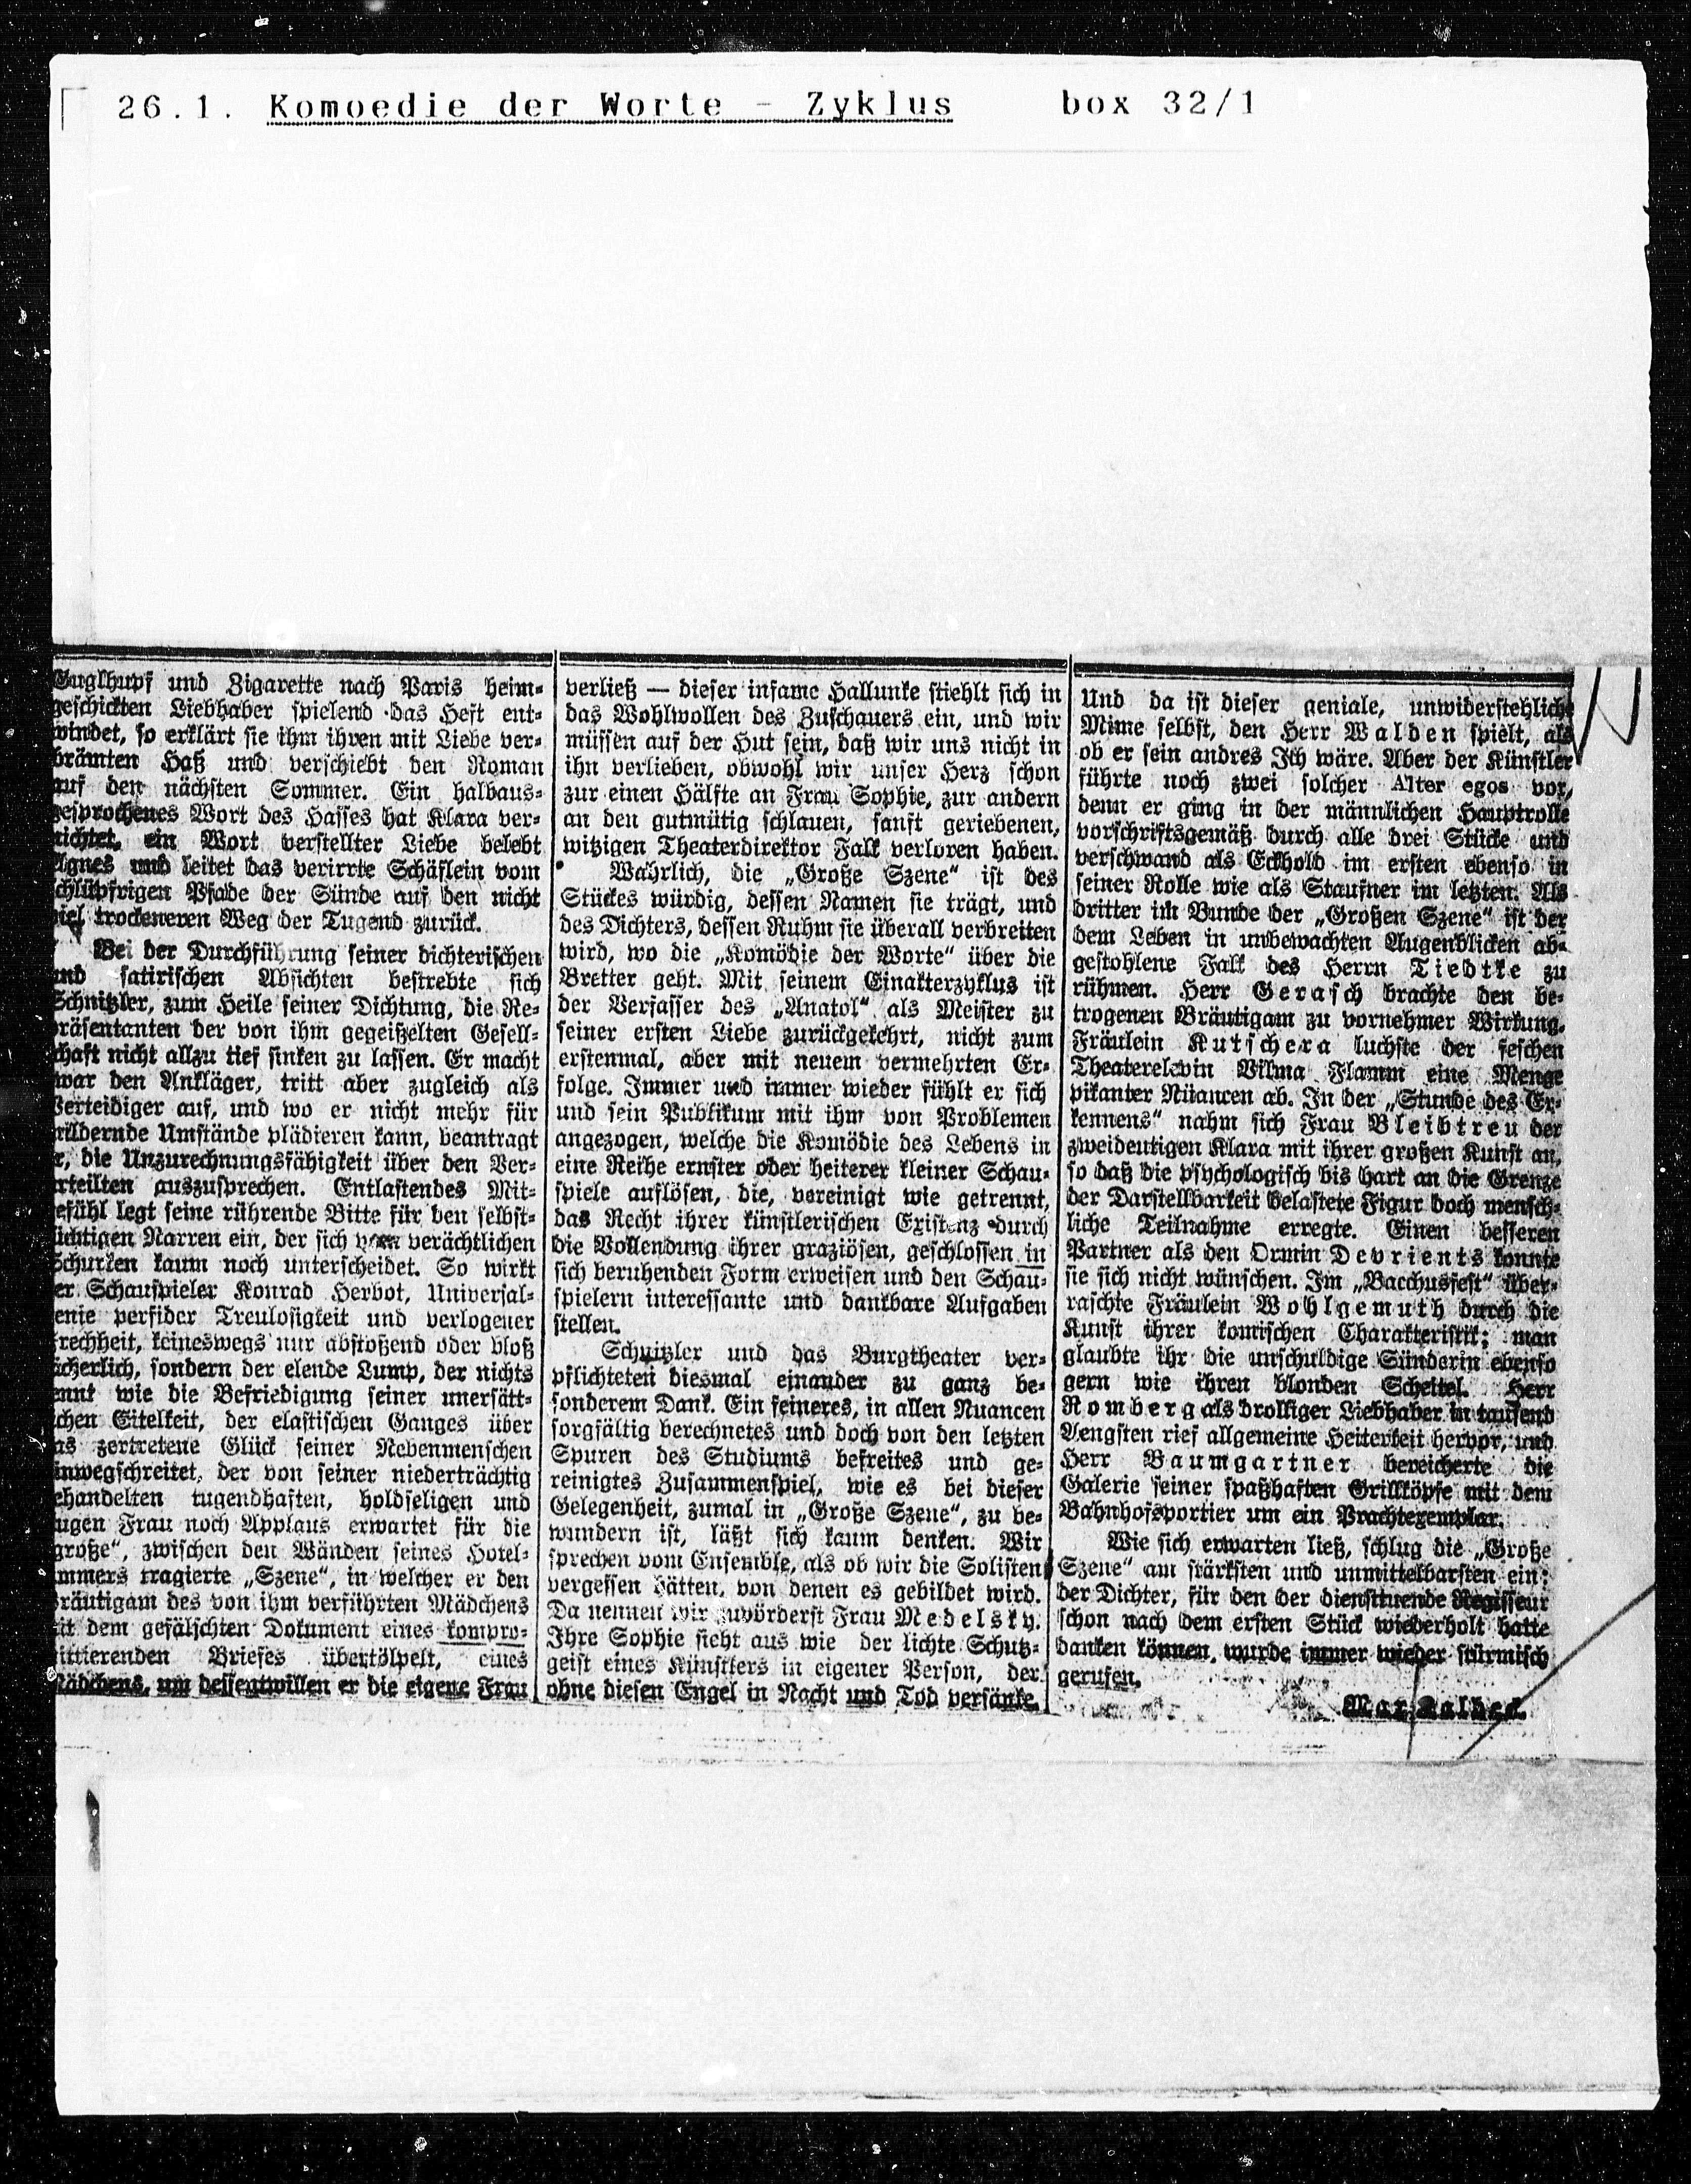 26.1. Komoedie der Worte - Zyklus box 32/1
Guglhupf und Zigarette nach Paris heim-
geschickten Liebhaber spielend das Heft ent-
windet, so erklärt sie ihm ihren mit Liebe ver-
brämten Haß und verschiebt den Roman
auf den nächsten Sommer. Ein halbaus-
gesprochenes Wort des Hasses hat Klara ver-
nichtet, ein Wort verstellter Liebe belebt
Agnes und leitet das verirrte Schäflein vom
schlüpfrigen Pfade der Sünde auf den nicht
viel trockeneren Weg der Tugend zurück.
Bei der Durchführung seiner dichterischen
und satirischen Absichten bestrebte sich
Schnitzler, zum Heile seiner Dichtung, die Re-
präsentanten der von ihm gegeißelten Gesell-
schaft nicht allzu tief sinken zu lassen. Er macht
zwar den Ankläger, tritt aber zugleich als
Verteidiger auf, und wo er nicht mehr für
mildernde Umstände plädieren kann, beantragt
er, die Unzurechnungsfähigkeit über den Ver-
urteilten auszusprechen. Entlastendes Mit-
gefühl legt seine rührende Bitte für den selbst-
süchtigen Narren ein, der sich vom verächtlichen
Schurken kaum noch unterscheidet. So wirkt
er Schauspieler Konrad Herbot, Universal-
enie perfider Treulosigkeit und verlogener
Frechheit, keineswegs nur abstoßend oder bloß
ächerlich, sondern der elende Lump, der nichts
ennt wie die Befriedigung seiner unersätt-
ichen Eitelkeit, der elastischen Ganges über
as zertretene Glück seiner Nebenmenschen
inwegschreitet, der von seiner niederträchtig
ehandelten tugendhaften, holdseligen und
ugen Frau noch Applaus erwartet für die
große“, zwischen den Wänden seines Hotel-
mmers tragierte „Szene“, in welcher er den
räutigam des von ihm verführten Mädchens
it dem gefälschten Dokument eines kompro-
ittierenden Briefes übertölpelt, eines
Mädchens, um dessentwillen er die eigene Frau
verließ — dieser infame Hallunke stiehlt sich in
das Wohlwollen des Zuschauers ein, und wir
müssen auf der Hut sein, daß wir uns nicht in
ihn verlieben, obwohl wir unser Herz schon
zur einen Hälfte an Frau Sophie, zur andern
an den gutmütig schlauen, sanft geriebenen,
witzigen Theaterdirektor Falk verloren haben.
Wahrlich, die „Große Szene“ ist des
Stückes würdig, dessen Namen sie trägt, und
des Dichters, dessen Ruhm sie überall verbreiten
wird, wo die „Komödie der Worte“ über die
Bretter geht. Mit seinem Einakterzyklus ist
der Verfasser des „Anatol“ als Meister zu
seiner ersten Liebe zurückgekehrt, nicht zum
erstenmal, aber mit neuem vermehrten Er-
folge. Immer und immer wieder fühlt er sich
und sein Publikum mit ihm von Problemen
angezogen, welche die Komödie des Lebens in
eine Reihe ernster oder heiterer kleiner Schau-
spiele auflösen, die, vereinigt wie getrennt,
das Recht ihrer künstlerischen Existenz durch
die Vollendung ihrer graziösen, geschlossen in
sich beruhenden Form erweisen und den Schau-
spielern interessante und dankbare Aufgaben
stellen.
Schnitzler und das Burgtheater ver-
pflichteten diesmal einander zu ganz be-
sonderem Dank. Ein feineres, in allen Nuancen
sorgfältig berechnetes und doch von den letzten
Spuren des Studiums befreites und ge-
reinigtes Zusammenspiel, wie es bei dieser
Gelegenheit, zumal in „Große Szene“, zu be-
wundern ist, läßt sich kaum denken. Wir
sprechen vom Ensemble, als ob wir die Solisten
vergessen hätten, von denen es gebildet wird.
Da nennen wir zuvörderst Frau Medelsky.
Ihre Sophie sieht aus wie der lichte Schutz-
geist eines Künstlers in eigener Person, der
ohne diesen Engel in Nacht und Tod versänke.
Und da ist dieser geniale, unwiderstehliche
Mime selbst, den Herr Walden spielt, als
ob er sein andres Ich wäre. Aber der Künstler
führte noch zwei solcher Alter egos vor,
denn er ging in der männlichen Hauptrolle
vorschriftsgemäß durch alle drei Stücke und
verschwand als Eckhold im ersten ebenso in
seiner Rolle wie als Staufner im letzten. Als
dritter im Bunde der „Großen Szene“ ist der
dem Leben in unbewachten Augenblicken ab-
gestohlene Falk des Herrn Tiedtke zu
rühmen. Herr Gerasch brachte den be-
trogenen Bräutigam zu vornehmer Wirkung.
Fräulein Kutschera luchste der feschen
Theaterelevin Vilma Flamm eine Menge
pikanter Nüancen ab. In der „Stunde des Er-
kennens“ nahm sich Frau Bleibtreu der
zweideutigen Klara mit ihrer großen Kunst an,
so daß die psychologisch bis hart an die Grenze
der Darstellbarkeit belastete Figur doch mensch-
liche Teilnahme erregte. Einen besseren
Partner als den Ormin Devrients konnte
sie sich nicht wünschen. Im „Bacchusfest“ über-
raschte Fräulein Wohlgemuth durch die
Kunst ihrer komischen Charakteristik; man
glaubte ihr die unschuldige Sünderin ebenso
gern wie ihren blonden Scheitel. Herr
Romberg als drolliger Liebhaber in tausend
Aengsten rief allgemeine Heiterkeit hervor, und
Herr Baumgartner bereicherte die
Galerie seiner spaßhaften Grillköpfe mit dem
Bahnhofsportier um ein Prachtexemplar.
Wie sich erwarten ließ, schlug die „Große
Szene“ am stärksten und unmittelbarsten ein;
der Dichter, für den der diensttuende Regisseur
schon nach dem ersten Stück wiederholt hatte
danken können, wurde immer wieder stürmisch
gerufen.
Max Kalbeck.